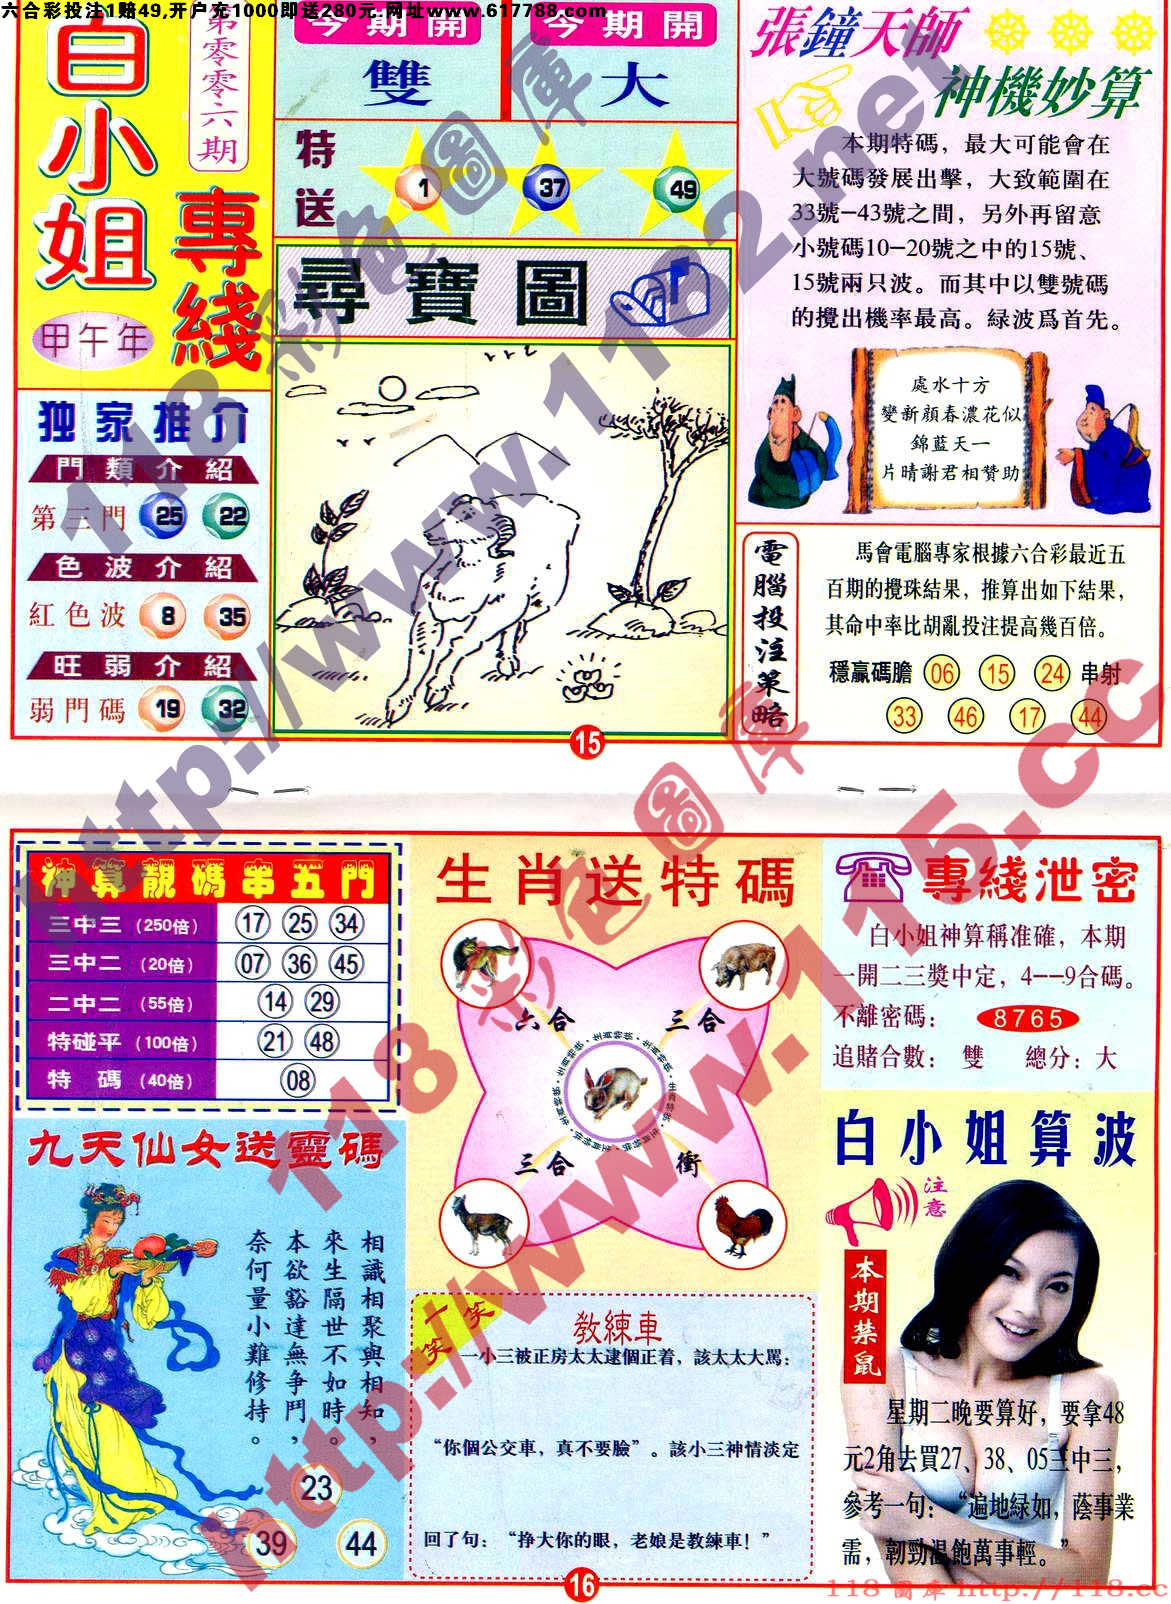 六合彩投注1赔49,开户充1000即送280元,网址www.617788.com
白小姐
專綫
第零零六期
甲午年
今期開
雙
今期開
大
特送
1
37
49
尋寶圖
張鐘天師
神機妙算
本期特碼，最大可能會在
大號碼發展出擊，大致範圍在
33號—43號之間，另外再留意
小號碼10—20號之中的15號、
15號兩只波。而其中以雙號碼
的攪出機率最高。緑波爲首先。
處水十方
變新顔春濃花似
錦藍天一
片晴謝君相贊助
独家推介
門類介紹
第三門 25 22
色波介紹
紅色波 8 35
旺弱介紹
弱門碼 19 32
電腦投注策略
馬會電腦專家根據六合彩最近五
百期的攪珠結果，推算出如下結果，
其命中率比胡亂投注提高幾百倍。
穩贏碼膽 06 15 24 串射
33 46 17 44
15
神算靚碼串五門
三中三（250倍） 17 25 34
三中二（20倍） 07 36 45
二中二（55倍） 14 29
特碰平（100倍） 21 48
特碼（40倍） 08
生肖送特碼
六合
三合
三合
衝
專綫泄密
白小姐神算稱准確，本期
一開二三獎中定，4——9合碼。
不離密碼： 8765
追賭合數： 雙 總分：大
九天仙女送靈碼
相識相聚與相知，
來生隔世不如時。
本欲豁達無争鬥，
奈何量小難修持。
23
39
44
一笑笑
教練車
一小三被正房太太逮個正着，該太太大罵：
“你個公交車，真不要臉”。該小三神情淡定
回了句：“挣大你的眼，老娘是教練車！”
白小姐算波
注意
本期禁鼠
星期二晚要算好，要拿48
元2角去買27、38、05三中三，
參考一句：“遍地緑如，蔭事業
需，韌勁温飽萬事輕。”
16
118彩色圖庫
http://www.1182.net
118彩色圖庫
http://www.115.cc
118圖庫 http://118.cc